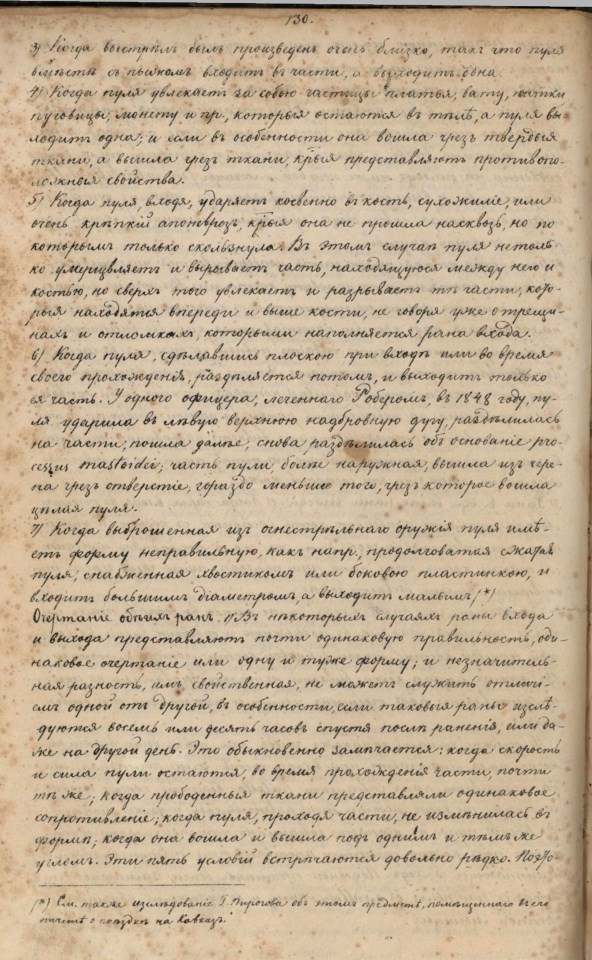 130.
3) Когда выстрѣлъ былъ произведенъ очень близко, такъ что пуля
вмѣстѣ съ пыжомъ входитъ въ части, а выходитъ одна.
4) Когда пуля увлекаетъ за собою частицы платья, вату,
пуговицы, монету и пр., которыя остаются въ тѣлѣ, а пуля вы-
ходитъ одна; и если въ особенности она вошла чрезъ твердыя
ткани, а вышла чрезъ ткани, крыя представляютъ противопо-
ложныя свойства.
5) Когда пуля, входя, ударяетъ косвенно въ кость, сухожиліе, или
очень крѣпкій апоневрозъ, крыя она не прошла насквозь, но по
которымъ только скользнула. Въ этомъ случаѣ пуля нетоль
ко умерщвляетъ и вырываетъ часть, находящуюся между нею и
костью, но сверхъ того увлекаетъ и разрываетъ тѣ части, кото-
рыя находятся впереди и выше кости, не говоря уже о трещи-
нахъ и отломкахъ, которыми наполняется рана входа.
6) Когда пуля, сдѣлавшись плоскою при входѣ или во время
своего прохожденія, раздѣляется потомъ, и выходитъ только
ея часть. У одного офицера, леченнаго Роберомъ, въ 1848 году, пу-
ля ударила въ лѣвую верхнюю надбровную дугу, раздѣлилась
на части, пошла далѣе, снова раздѣлилась объ основаніе pro-
cessus mastoidei; часть пули, болѣе наружная, вышла изъ чере-
па чрезъ отверстіе, гораздо меньшее того, чрезъ которое вошла
цѣлая пуля.
7) Когда выброшенная изъ огнестрѣльнаго оружія пуля имѣ-
етъ форму неправильную, какъ напр., продолговатая сжатая
пуля, снабженная хвостикомъ или боковою пластинкою, и
входитъ большимъ діаметромъ, а выходитъ малымъ (*)
Очертаніе обѣихъ ранъ. 1) Въ нѣкоторыхъ случаяхъ раны входа
и выхода представляютъ почти одинаковую правильность, оди-
наковое очертаніе или одну и туже форму; и незначитель-
ная разность, имъ свойственная, не можетъ служить отличі-
емъ одной отъ другой, въ особенности, если таковыя раны изслѣ-
дуются восемь или десять часовъ спустя послѣ раненія, или да-
же на другой день. Это обыкновенно замѣчается: когда скорость
и сила пули остаются, во время прохожденія части, почти
тѣ же; когда прободенныя ткани представляли одинаковое
сопротивленіе; когда пуля, проходя части, не измѣнилась въ
формѣ; когда она вошла и вышла подъ однимъ и тѣмъ же
угломъ. Эти пять условій встрѣчаются довольно рѣдко. Поято-
(*) См. также изслѣдованіе Г. Пирогова объ этомъ предметѣ, помѣщеннаго въ его
отчетѣ о поѣздкѣ на Кавказъ.